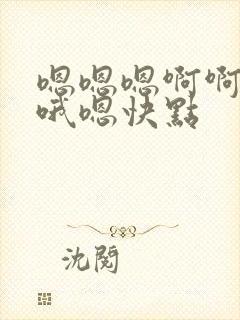 嗯嗯嗯啊啊
哦嗯快點
沈閱